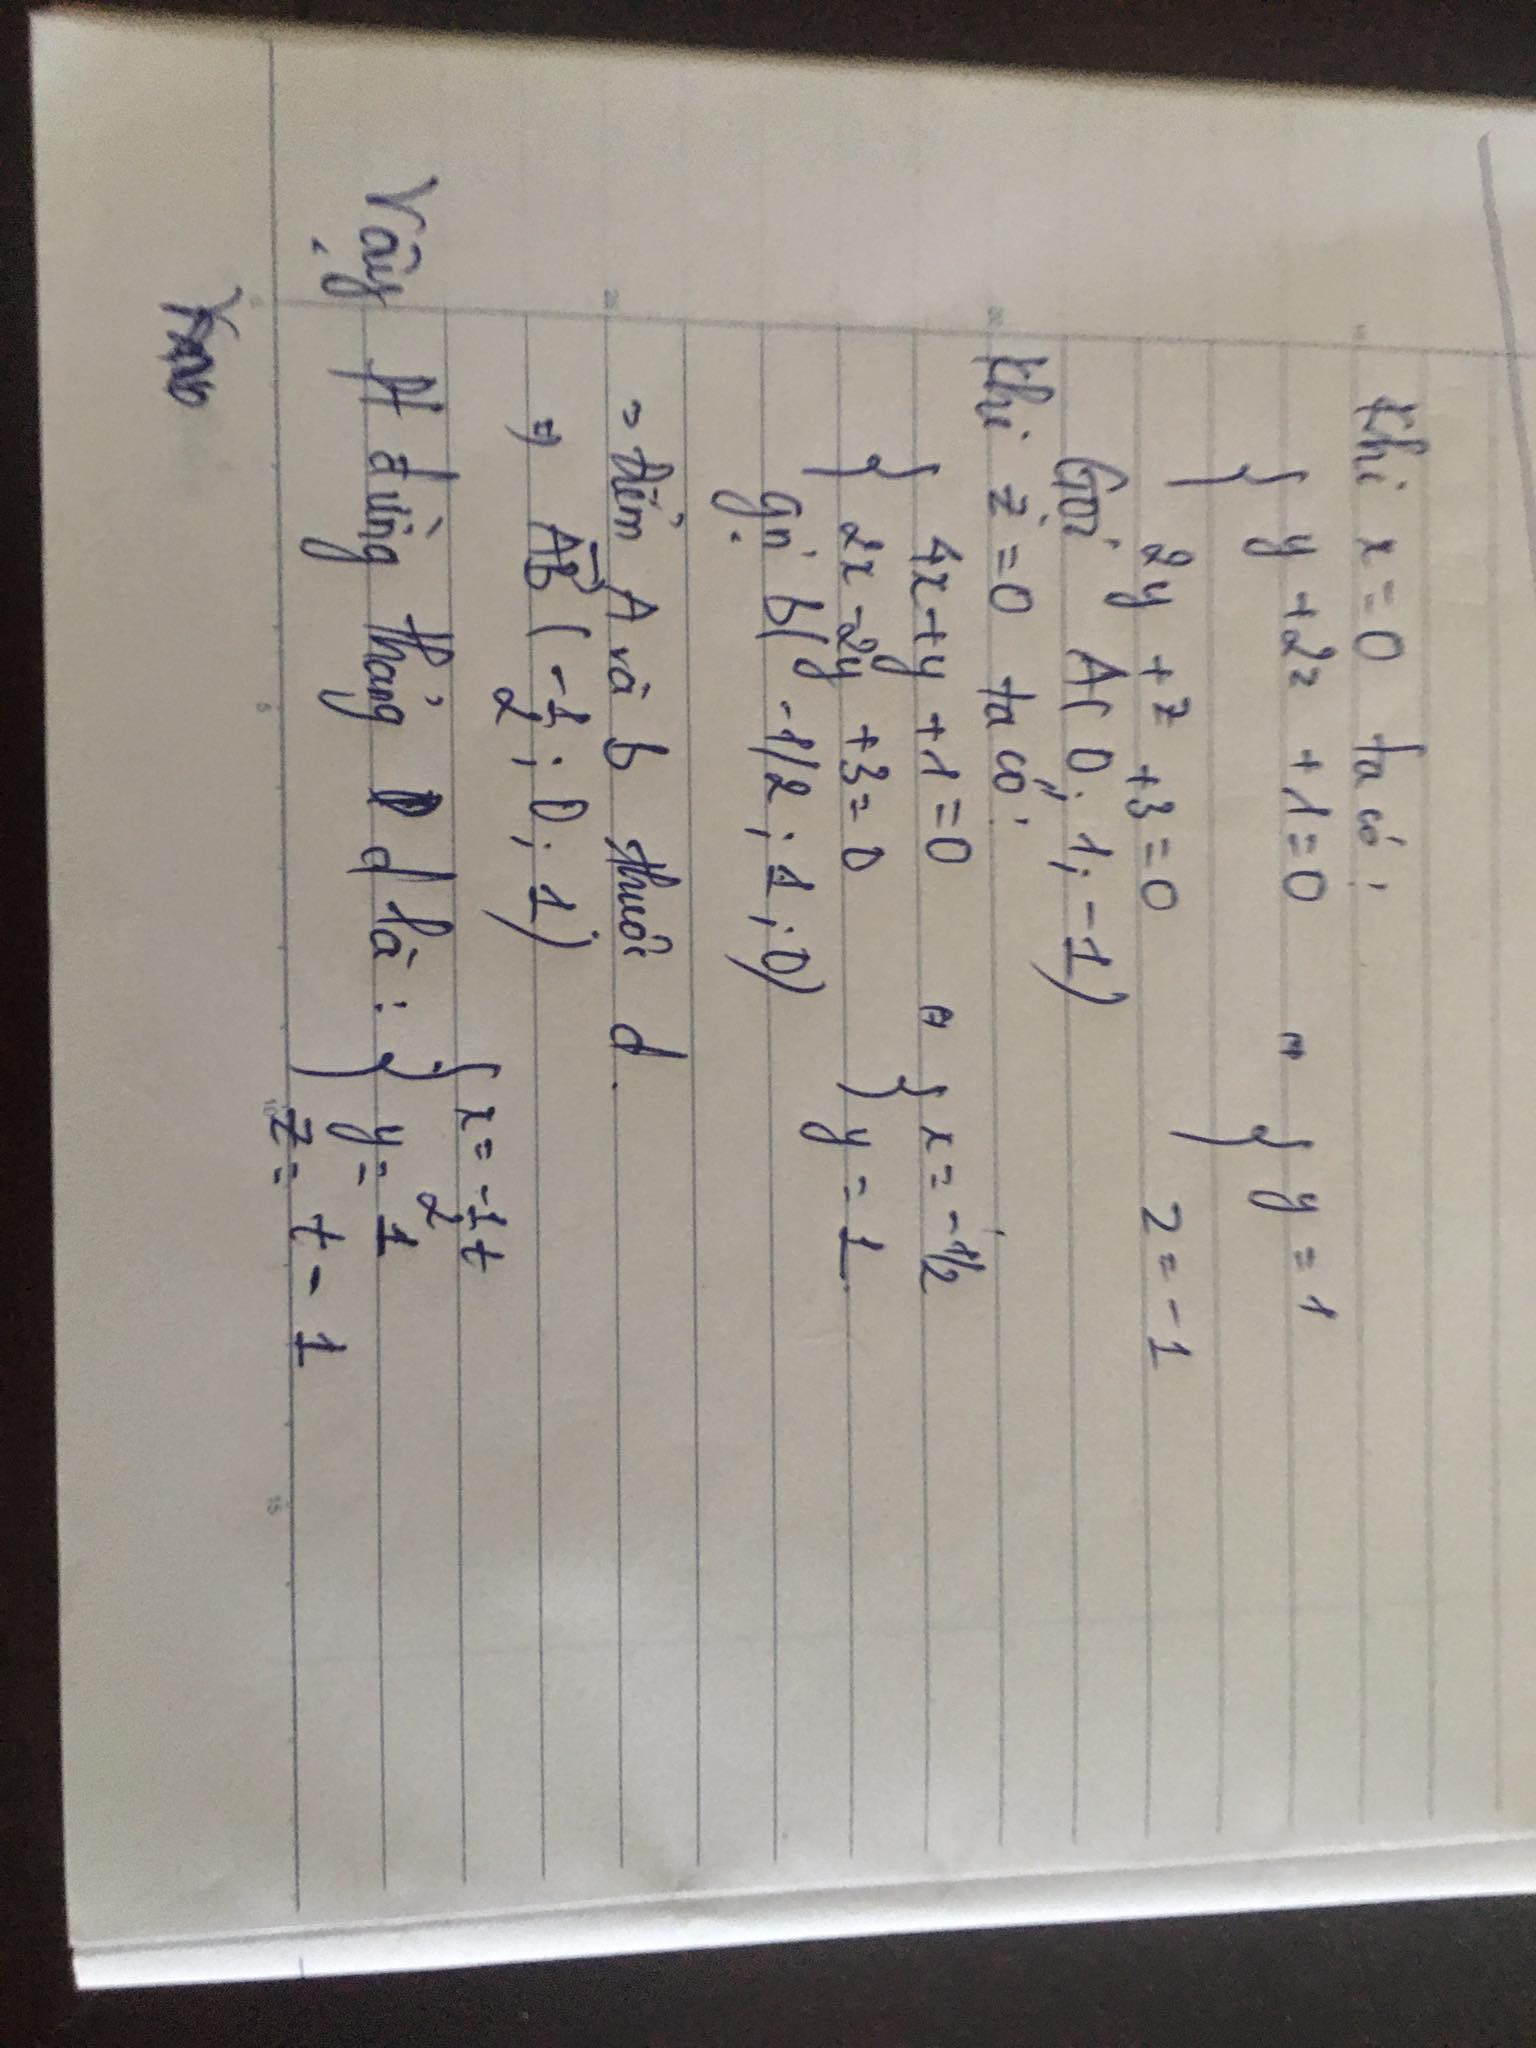 Khi x = 0 ta có:
{ y + 2z + 1 = 0 ⇔ { y = 1
2y + z + 3 = 0 z = -1
Gọi A( 0; 1; -1)
Khi z = 0 ta có:
{ 4x + y + 1 = 0 ⇔ { x = -1/2
2x - 2y + 3 = 0 y = 1
gọi b( -1/2; 1; 0)
⇒ Điểm A và b thuôc d.
⇒ AB ( -1/2; 0; 1)
Vậy pt đường thẳng d là: { x = -1/2 t
y = 1
z = t - 1